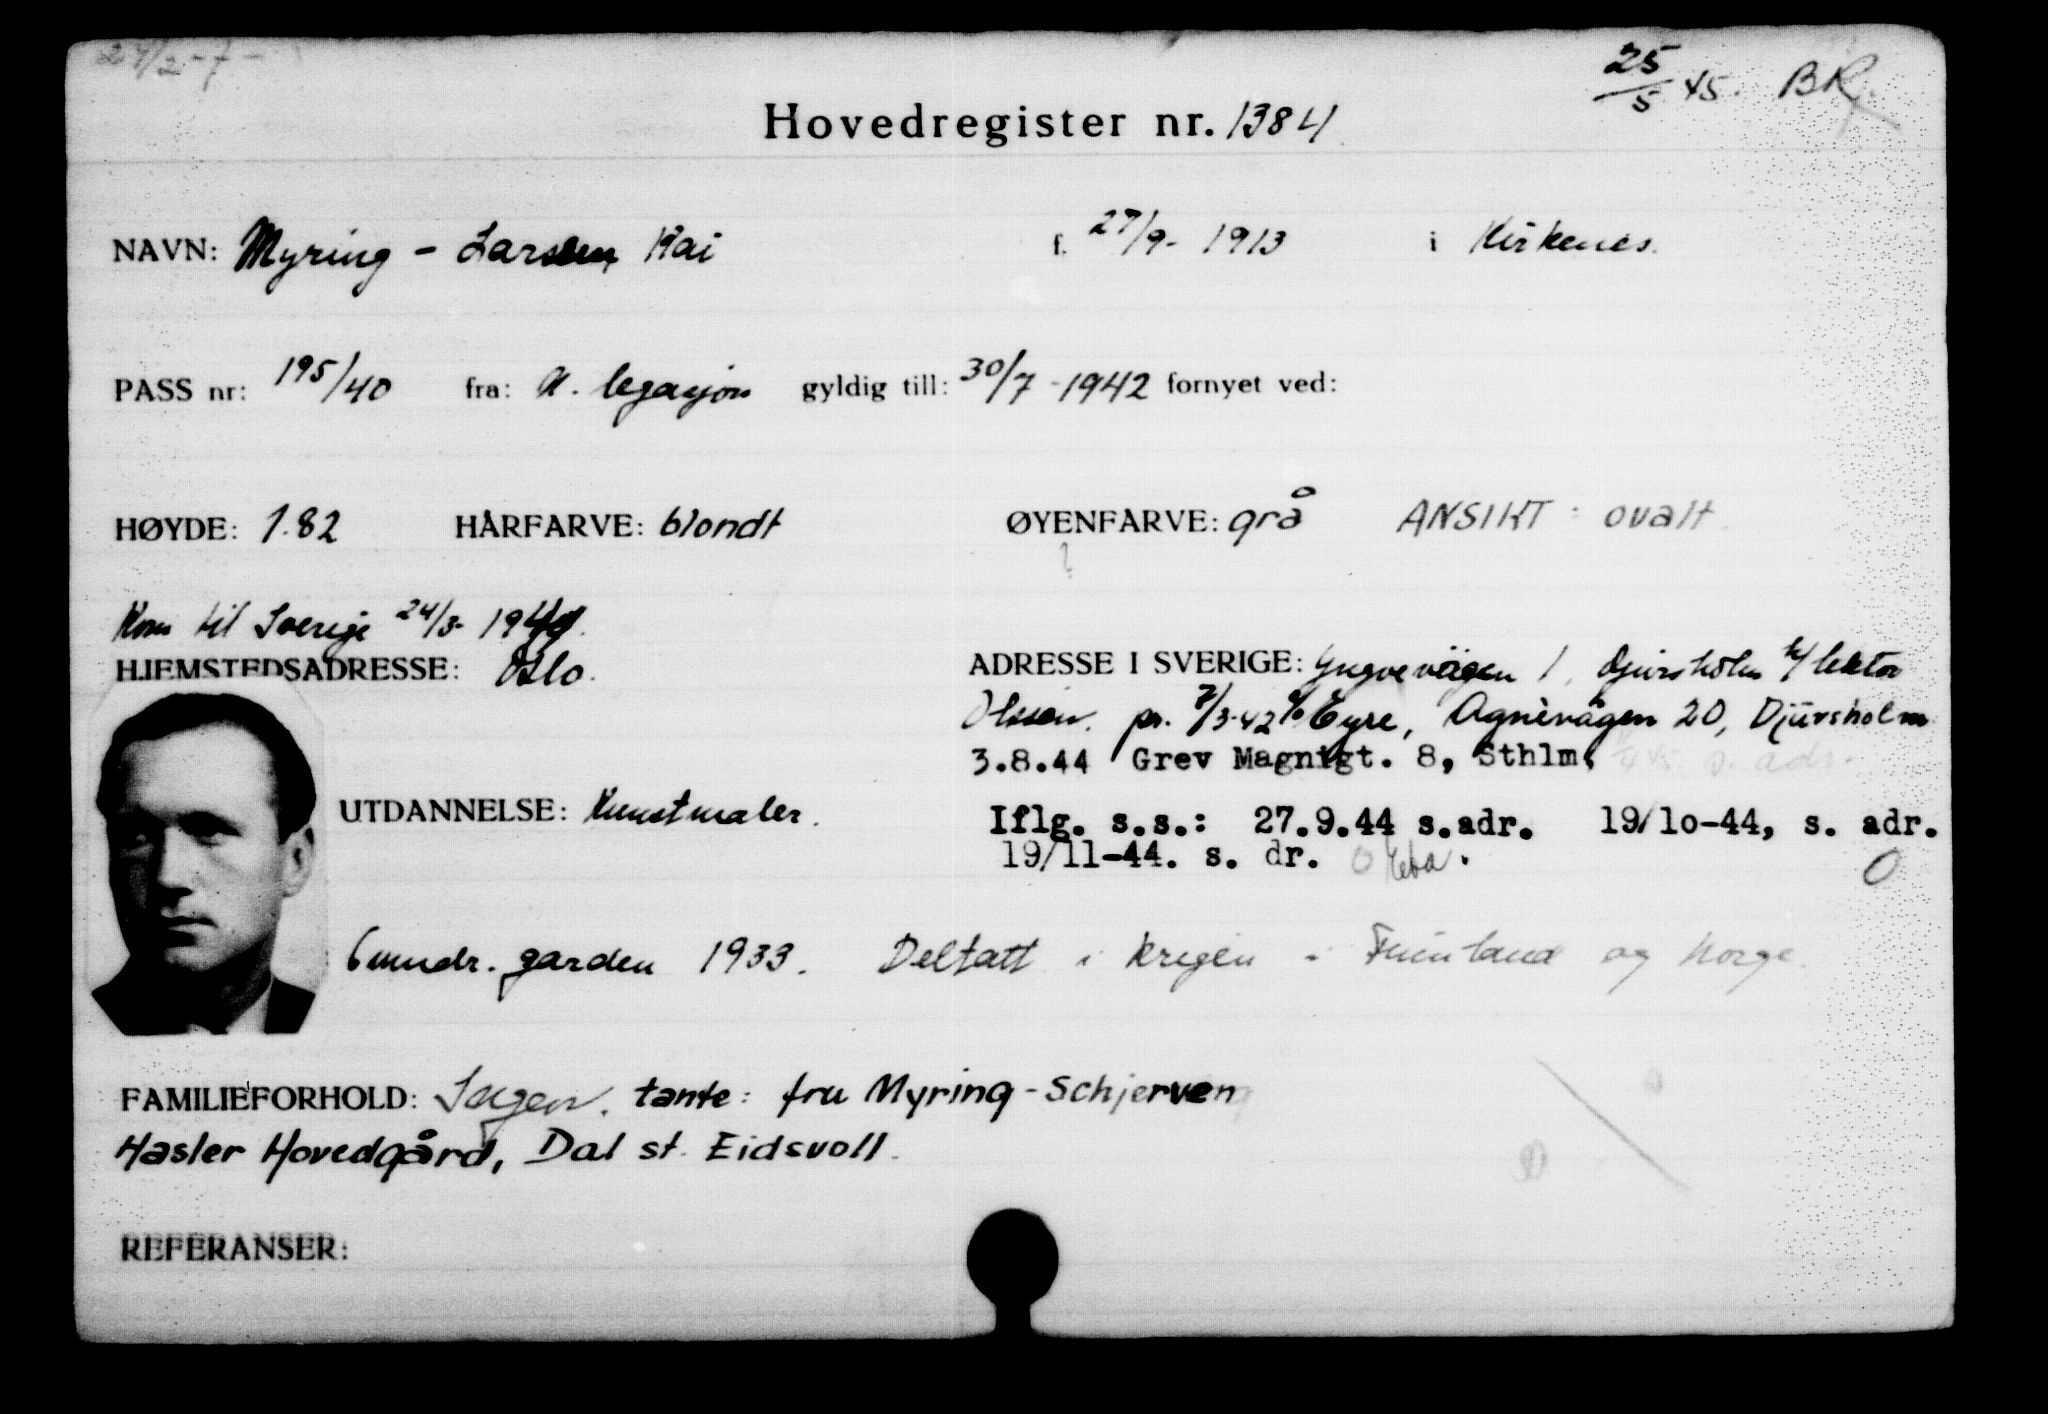 24/2-7-
25/5 45. BR.
Hovedregister nr. 1384
NAVN: Myring - Larsen Kai f. 27/9- 1913 i Kirkenes.
PASS nr: 195/40 fra: N. legasjon gyldig till: 30/7 -1942 fornyet ved:
HØYDE: 1.82 HÅRFARVE: blondt ØYENFARVE: grå ANSIKT: ovalt
?
Kom til Sverige 24/3- 1940.
HJEMSTEDSADRESSE: Oslo. ADRESSE I SVERIGE: Yngvevägen 1, Djursholm h/ lektor
Olsson. pr. 7/3-42 c/o Eyre, Agnevägen 20, Djursholm
3.8.44 Grev Magnigt. 8, Sthlm. s. adr.
UTDANNELSE: Kunstmaler. Iflg. s.s.: 27.9.44 s.adr. 19/10-44, s. adr.
19/11-44. s. dr. O
O
garden 1933. Deltatt i krigen i Finnland og Norge.
FAMILIEFORHOLD: Ingen. tante: fru Myring-Schjerven
Hasler Hovedgård, Dal st. Eidsvoll.
REFERANSER: